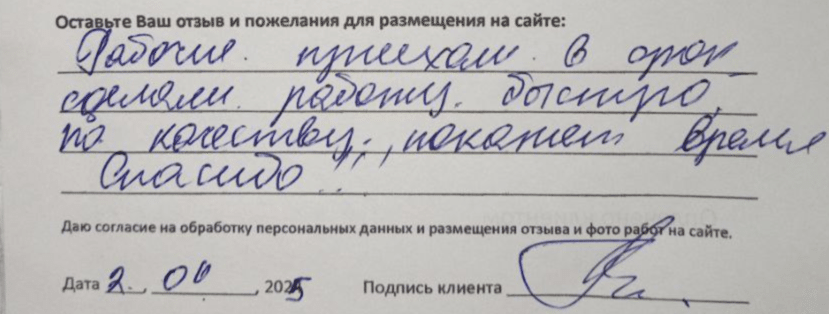 Оставьте Ваш отзыв и пожелания для размещения на сайте:
Рабочие приехали в срок
сделали работу быстро,
по качеству, покажет время
Спасибо!!
Даю согласие на обработку персональных данных и размещения отзыва и фото работ на сайте.
Дата 2. 06 , 2025 Подпись клиента